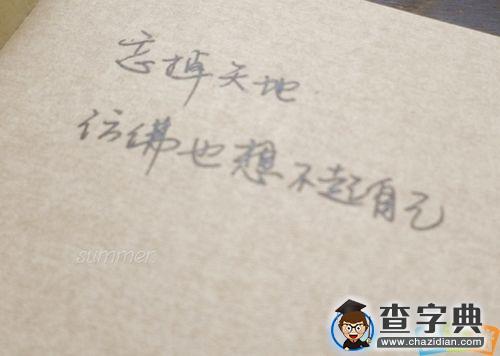 忘掉天地
仿佛也想不起自己
summer.
查字典
www.chazidian.com